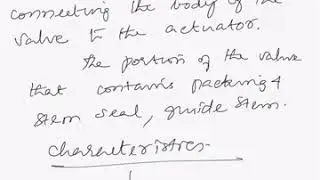 connecting the body of the
valve to the actuator.
the portion of the valve
that contains packing &
stem seal, guide stem.
characteristres